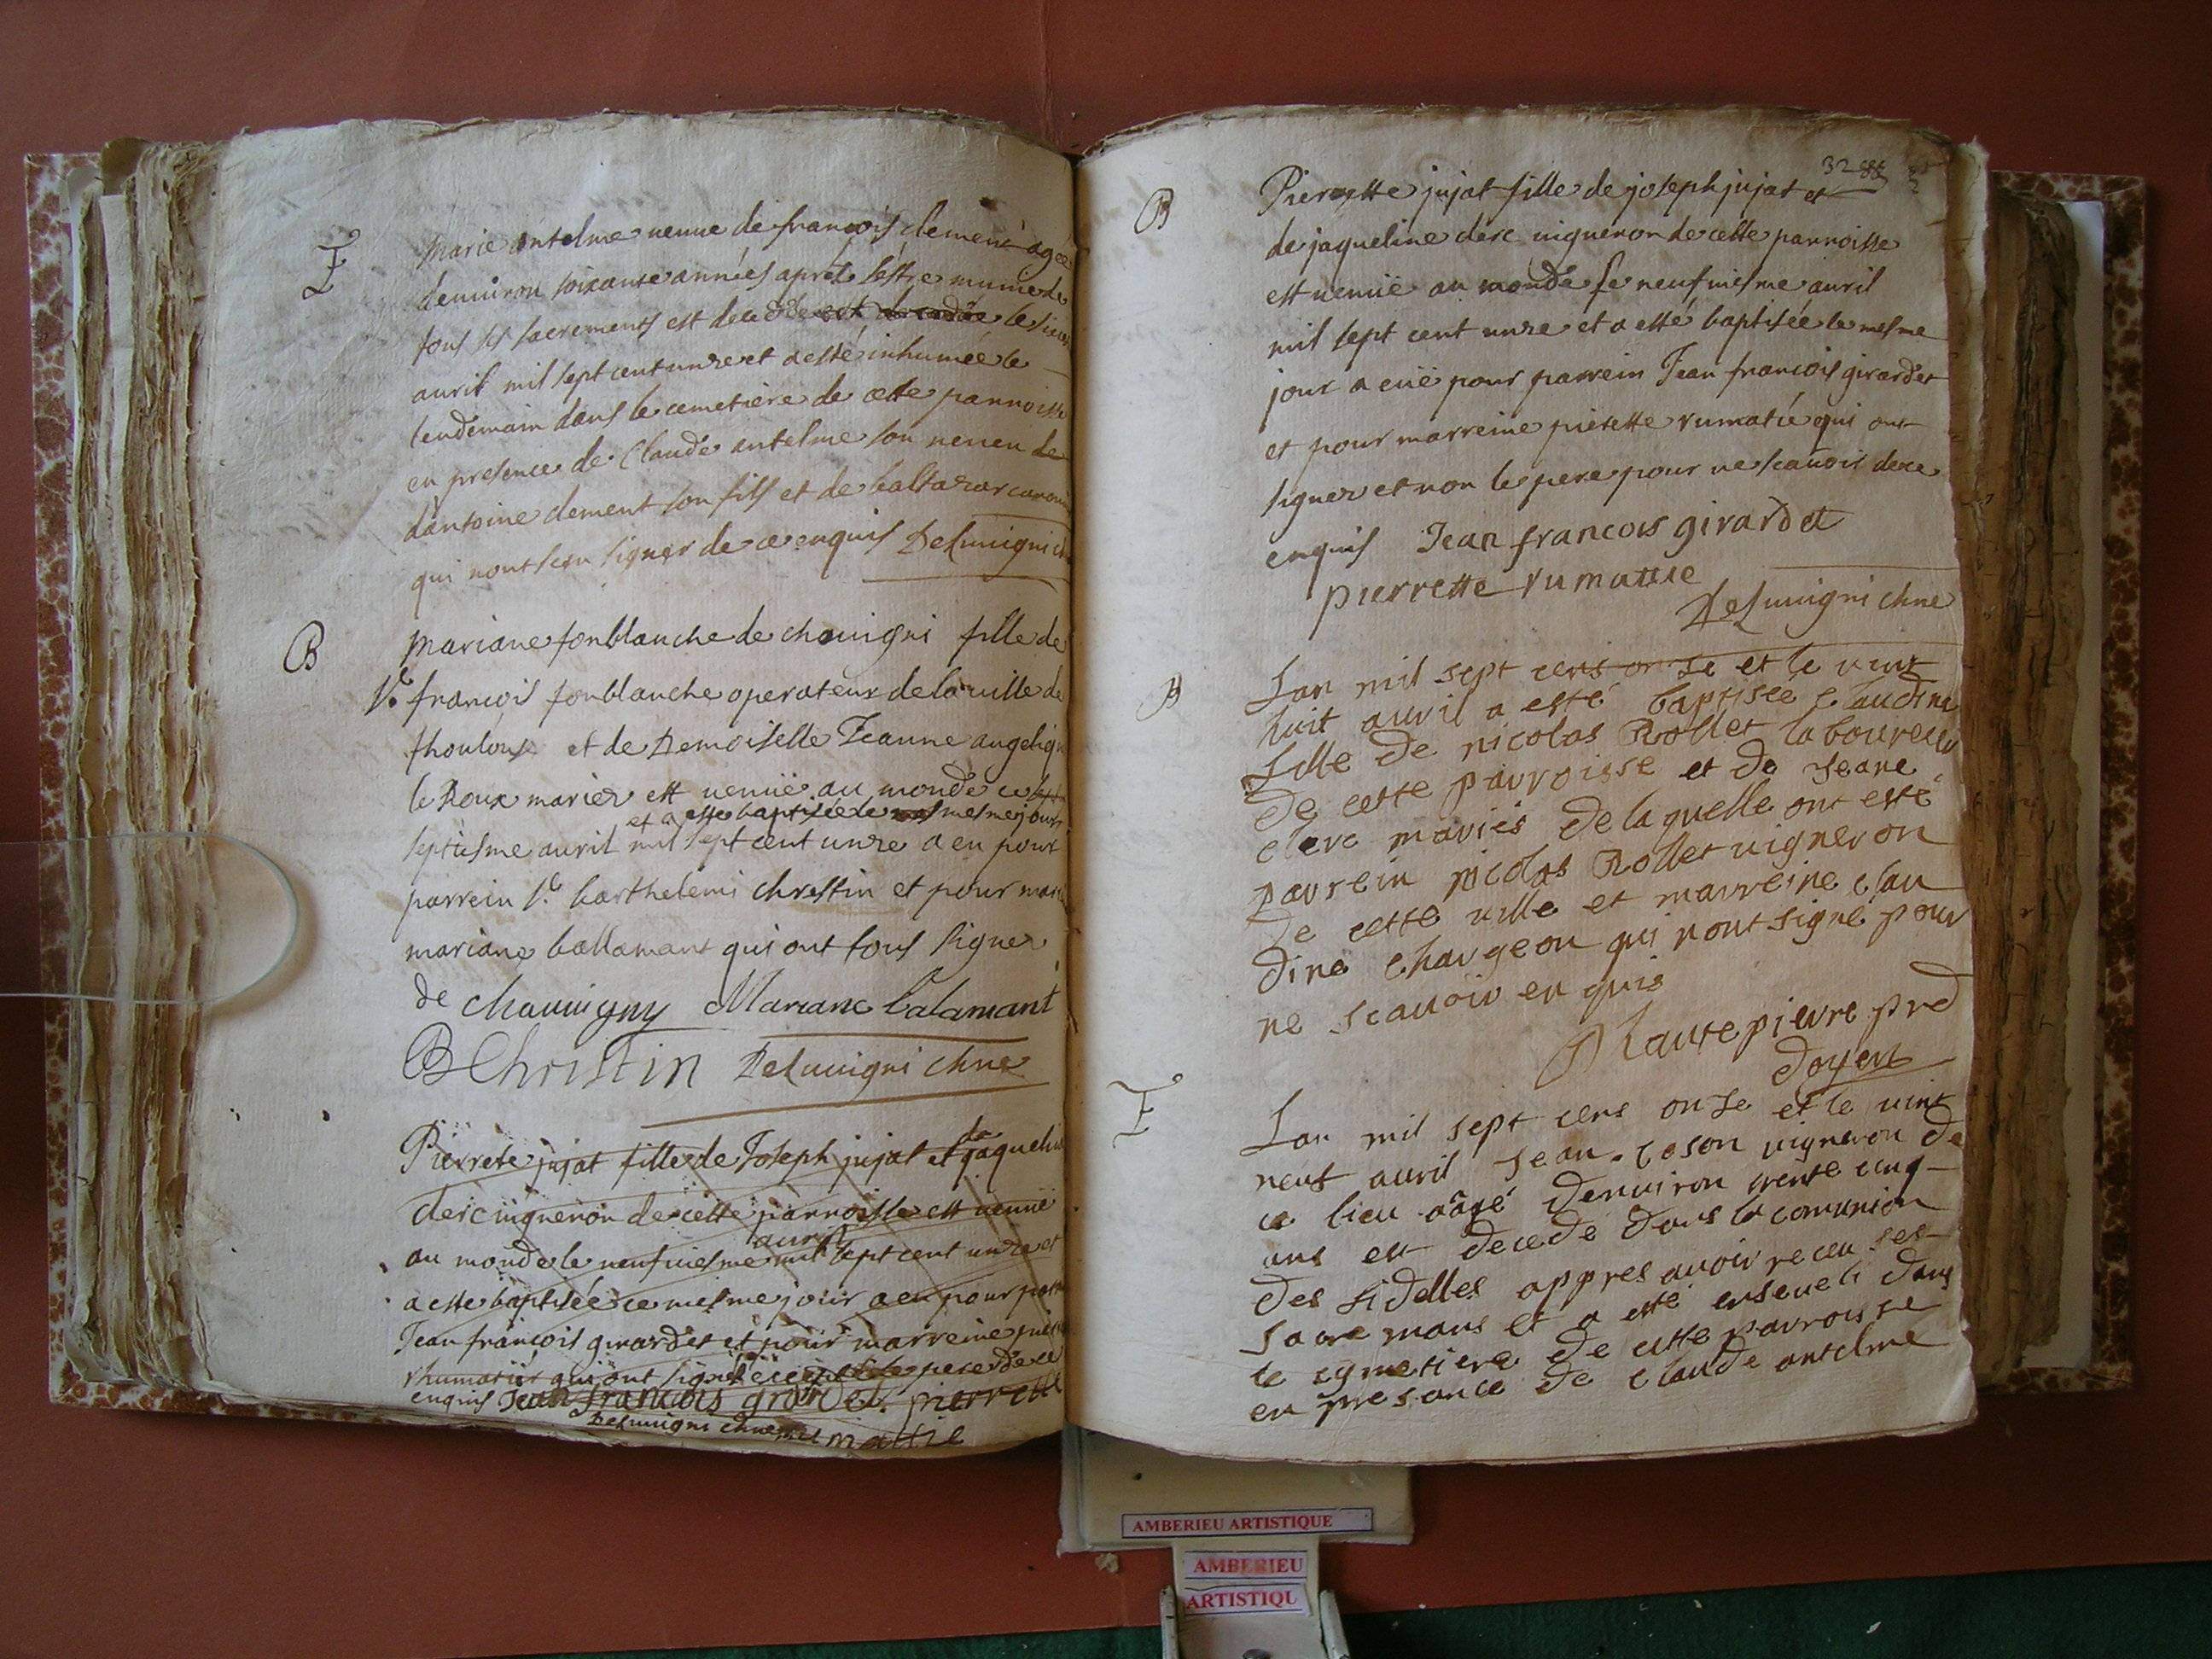 E
marie antelme veuve de francois clement agée
denuiron soixante années aprés sestre munie de
tous ses sacrements est decedée est decedée le
auril mil sept cent unze et a esté inhumée le
lendemain dans le cemetiere de cette parroisse
en presence de Claude antelme son neueu de
dantoine clement son fils et de baltazar
qui nont sceu signer de ce enquis Deluuigni
B
Mariane fonblanche de chauigni fille de
sr. francois fonblanche operateur de la uille de
thoulouse et de Demoiselle Jeanne angeliqu
le Roux mariez est venuë au monde ce
et a esté baptisée le mesme jour
septiesme auril mil sept cent unze a eu pour
parrein sr. barthelemi chrestin et pour mare
mariane ballamant qui ont tous signez
de chauuigny Mariane Calamant
B Christin Deluuigni chne
Pierrete jujat fille de Joseph jujat et de jaqueline
clerc uigneron de cette parroisse est venuë
au monde le neufuiesme auril mil sept cent unze et
a esté baptisée ce mesme jour a eu pour parrein
Jean francois girardet et pour marreine
rhumatié qui ont signé excepté le pere de ce
enquis Jean francois girardet pierrette
Deluuigni chne rumattie
32
B
Pierrette jujat fille de joseph jujat et
de jaqueline clerc uigneron de cette parroisse
est venuë au monde le neufuiesme auril
mil sept cent unze et a esté baptisée le mesme
jour a euë pour parrein Jean francois girardet
et pour marreine pierette rumatié qui ont
signez et non le pere pour ne scauoir de ce
enquis Jean francois girardet
pierrette rumattie
Deluuigni chne
B
Lan mil sept cens onse et le vint
huit auril a esté baptisée Claudine
fille de nicolas Rollet laboureur
de cette parroisse et de Jeane
clerc mariés de laquelle ont esté
parrein nicolas Rollet uigneron
de cette uille et marreine clau
dine chargeon qui nont signé pour
ne scauoir enquis
hautepierre pred
doyen
E
Lan mil sept cens onse et le vint
neuf auril Jean coson uigneron de
ce lieu aâgé denuiron trente cinq
ans est decedé dans la comunion
des fidelles appres auoir receu ses
sacremans et a esté enseueli dans
le cymetiere de cette parroisse
en presance de claude antelme
AMBERIEU ARTISTIQUE
AMBERIEU
ARTISTIQU